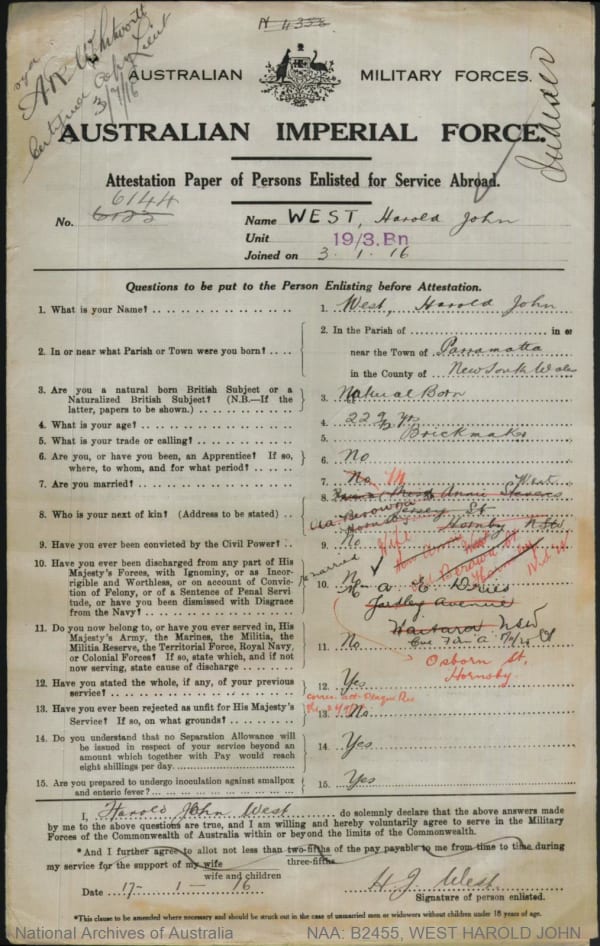 N 4356
A.R. Whitworth
Lieut
3/7/16
AUSTRALIAN MILITARY FORCES.
AUSTRALIAN IMPERIAL FORCE.
Attestation Paper of Persons Enlisted for Service Abroad.
6144
No. 6123
Name WEST, Harold John
Unit 19/3.Bn
Joined on 3.1.16
Questions to be put to the Person Enlisting before Attestation.
1. What is your Name? 1. West, Harold John
2. In or near what Parish or Town were you born? 2. In the Parish of in or
near the Town of Parramatta
in the County of New South Wales
3. Are you a natural born British Subject or a
Naturalized British Subject? (N.B.—If the
latter, papers to be shown.) 3. Natural Born
4. What is your age? 4. 22 9/12 yrs
5. What is your trade or calling? 5. Brickmaker
6. Are you, or have you been, an Apprentice? If so,
where, to whom, and for what period? 6. No
7. Are you married? 7. No M
8. Who is your next of kin? (Address to be stated) 8. Annie Stevens West
St
Hornsby NSW
Wife
9. Have you ever been convicted by the Civil Power? 9. No
10. Have you ever been discharged from any part of His
Majesty's Forces, with Ignominy, or as Incor-
rigible and Worthless, or on account of Convic-
tion of Felony, or of a Sentence of Penal Servi-
tude, or have you been dismissed with Disgrace
from the Navy? 10. No
Avenue
Waitara NSW
11. Do you now belong to, or have you ever served in, His
Majesty's Army, the Marines, the Militia, the
Militia Reserve, the Territorial Force, Royal Navy,
or Colonial Forces? If so, state which, and if not
now serving, state cause of discharge 11. No
Osborn St,
Hornsby
12. Have you stated the whole, if any, of your previous
service? 12. Yes
13. Have you ever been rejected as unfit for His Majesty's
Service? If so, on what grounds? 13. No
14. Do you understand that no Separation Allowance will
be issued in respect of your service beyond an
amount which together with Pay would reach
eight shillings per day. 14. Yes
15. Are you prepared to undergo inoculation against smallpox
and enteric fever? 15. Yes
I, Harold John West do solemnly declare that the above answers made
by me to the above questions are true, and I am willing and hereby voluntarily agree to serve in the Military
Forces of the Commonwealth of Australia within or beyond the limits of the Commonwealth.
*And I further agree to allot not less than two-fifths of the pay payable to me from time to time during
three-fifths
my service for the support of my wife
wife and children
Date 17-1-16
H. J. West
Signature of person enlisted.
*This clause to be amended where necessary and should be struck out in the case of unmarried men or widowers without children under 18 years of age.
National Archives of Australia NAA: B2455, WEST HAROLD JOHN